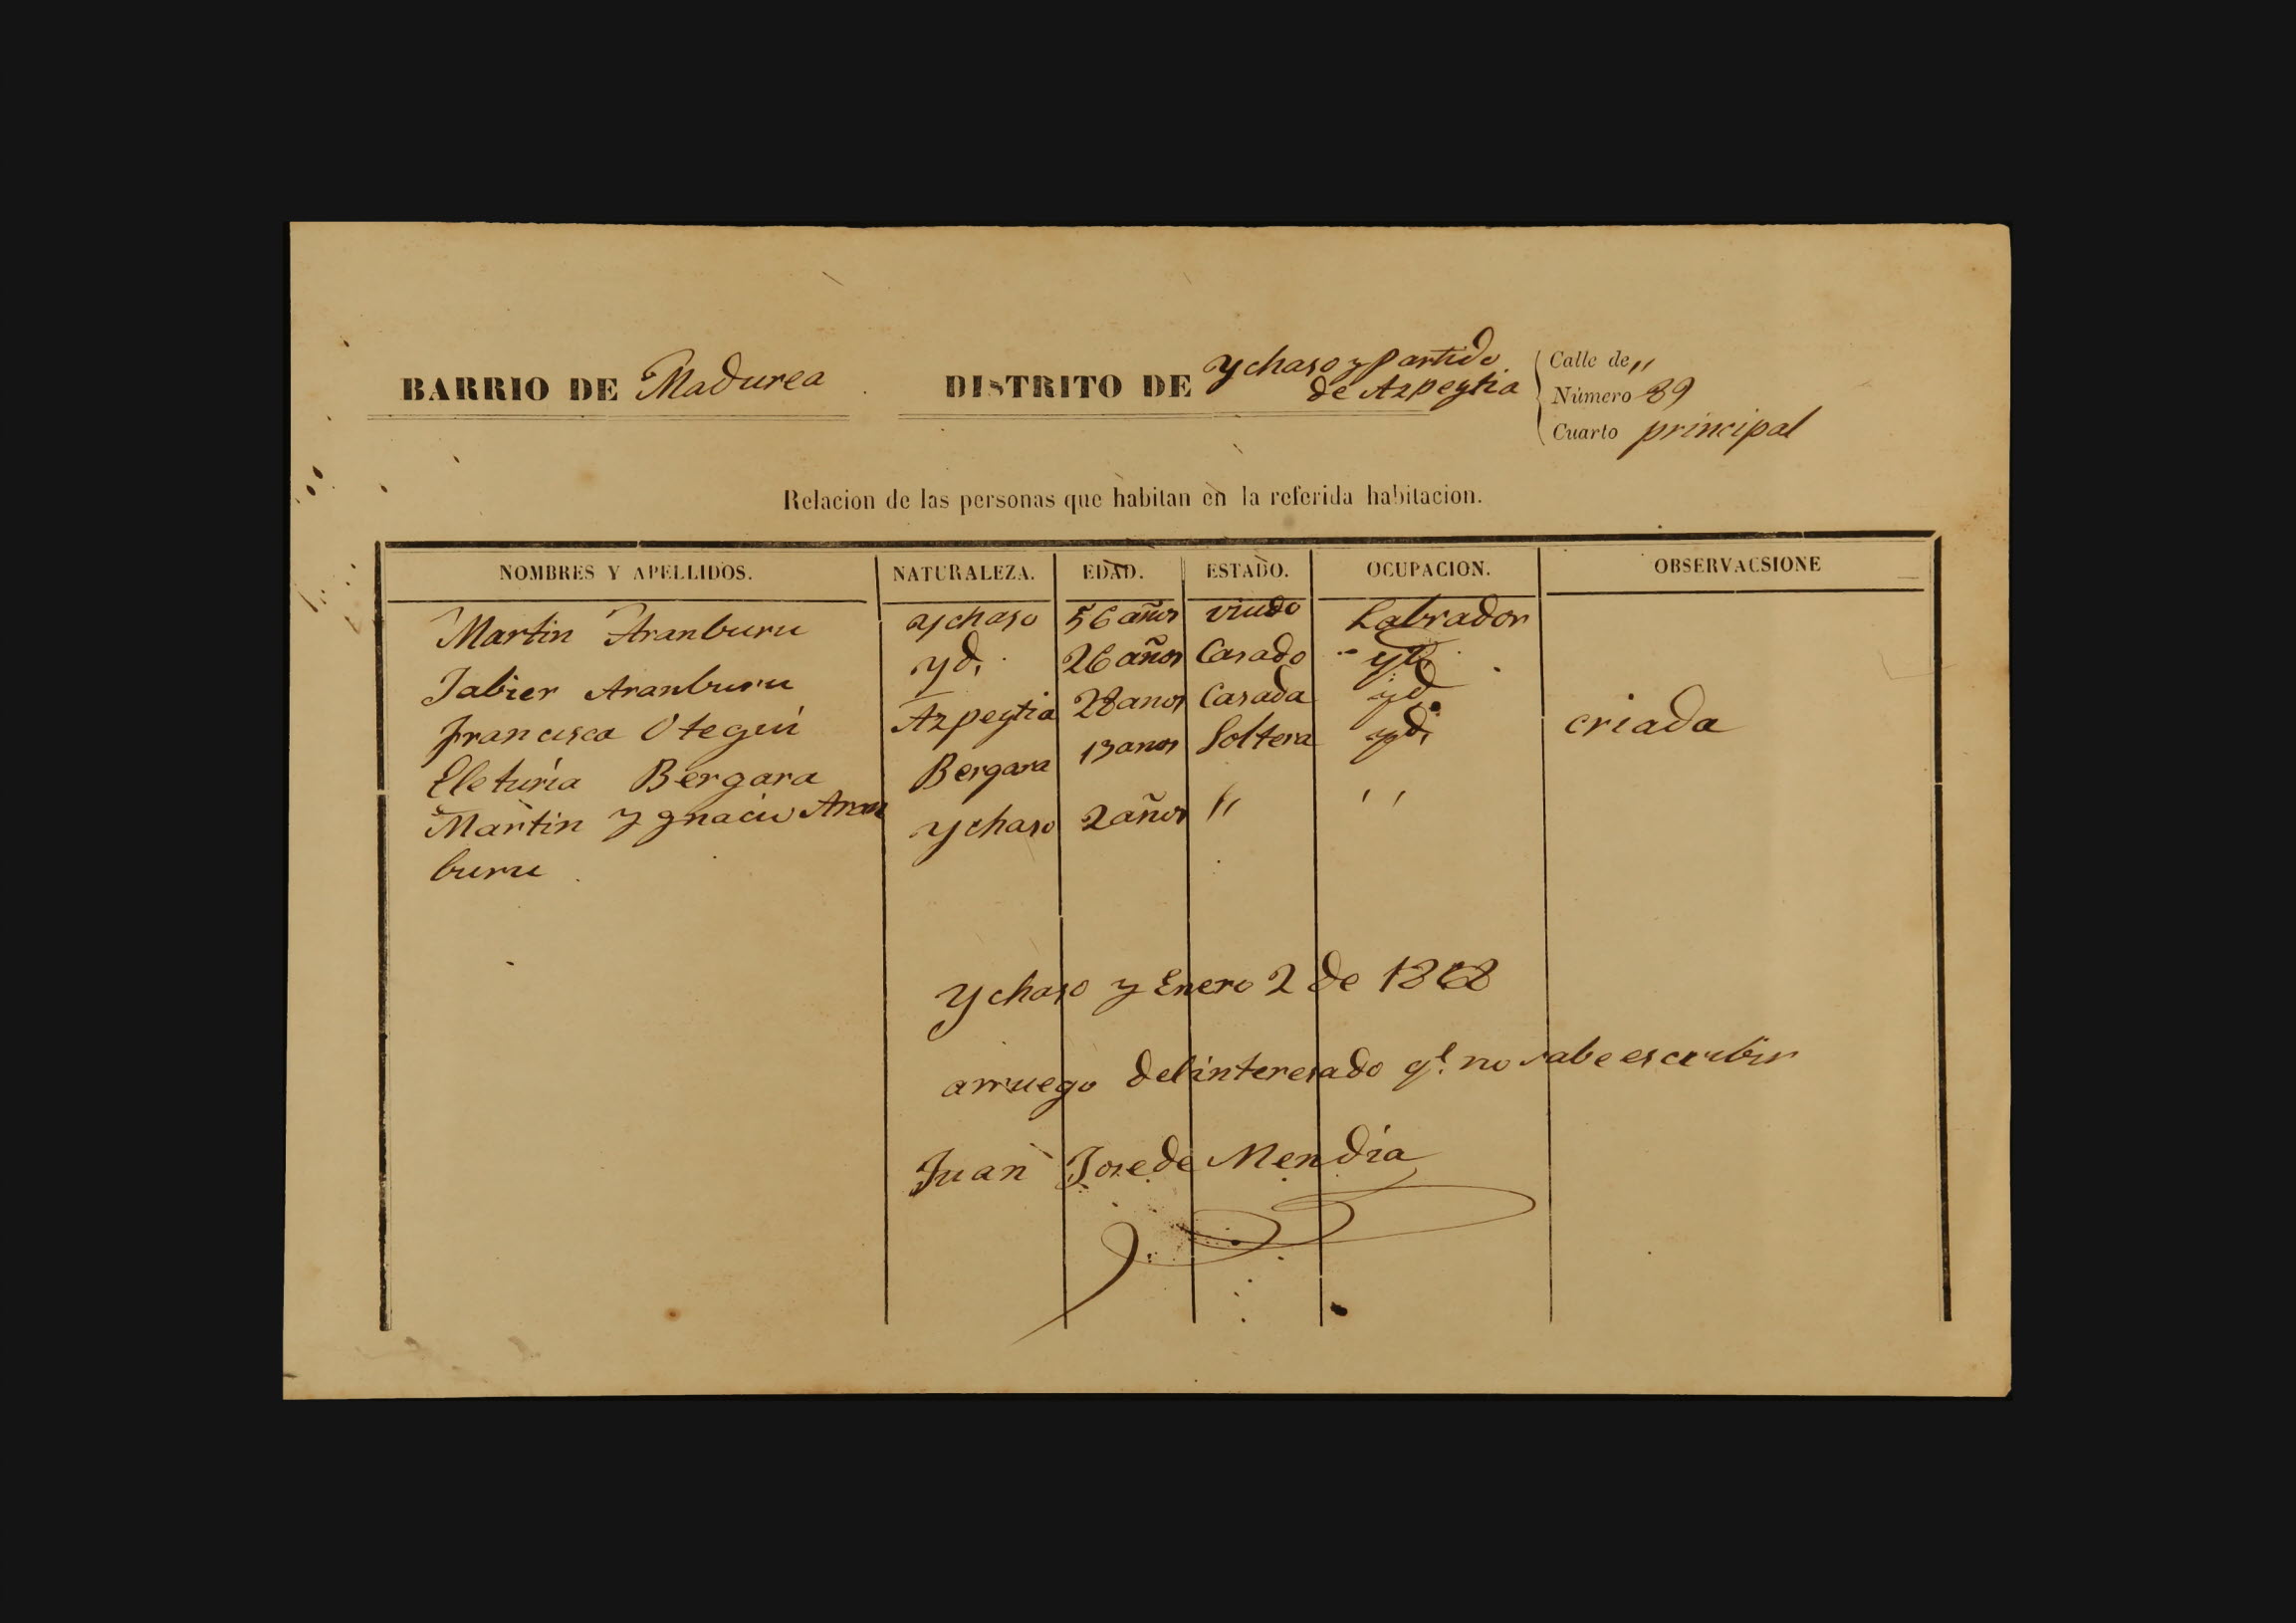 BARRIO DE Madurea
DISTRITO DE Ychaso y partido
de Azpeytia
Calle de "
Número 89
Cuarto principal
Relacion de las personas que habitan en la referida habitacion.
NOMBRES Y APELLIDOS. NATURALEZA. EDAD. ESTADO. OCUPACION. OBSERVACSIONE
Martin Aranburu Ychaso 56 años viudo Labrador
Jabier Aranburu yd. 26 años Casado yd.
Francisca Otegui Azpeytia 28 anos Casada yd.
Eleturia Bergara Bergara 13 anos Soltera yd. criada
Martin Ygnacio Aran Ychaso 2 años " "
buru
Ychaso y Enero 2 de 1868
arruego del interesado q.e no sabe escribir
Juan Jose de Mendia